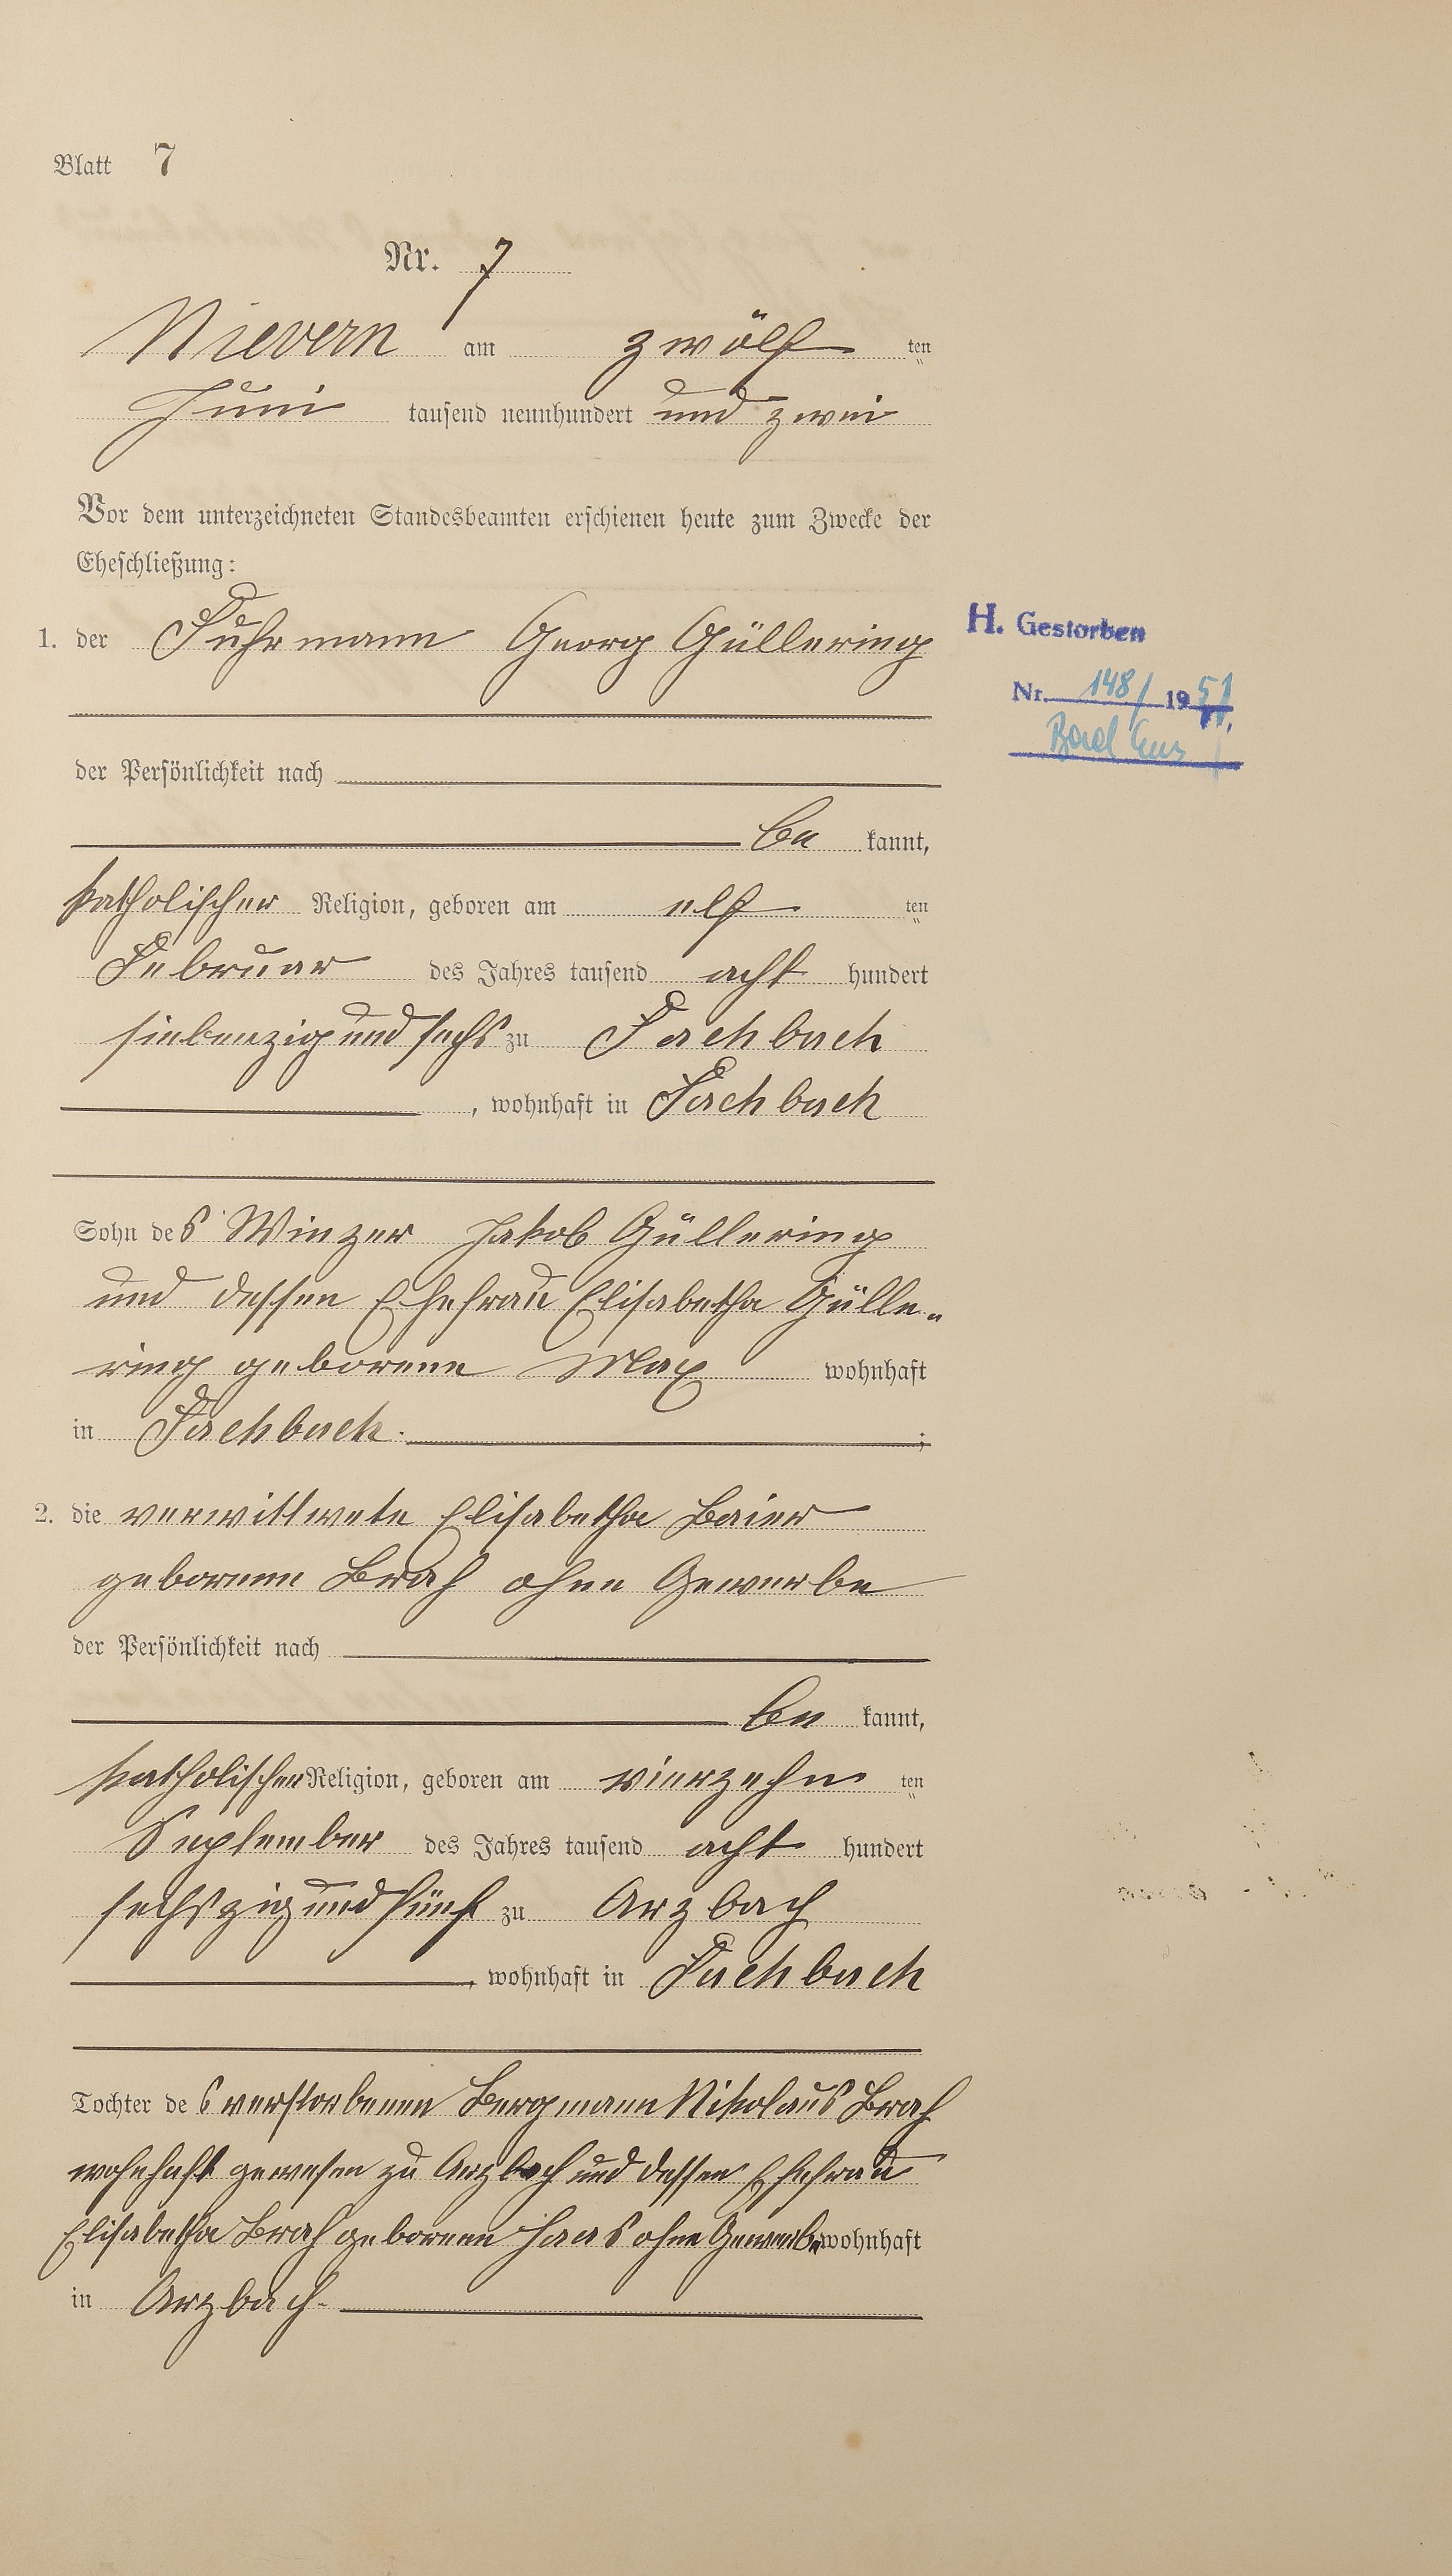 Blatt 7
Nr. 7
Nievern am zwölf ten
Juni tausend neunhundert und zwei
Vor dem unterzeichneten Standesbeamten erschienen heute zum Zwecke der
Eheschließung:
1. der Fuhrmann Georg Güllering
H. Gestorben
Nr. 148/ 1951
Bad Ems
der Persönlichkeit nach
be kannt,
katholischer Religion, geboren am elf ten
Februar des Jahres tausend acht hundert
siebenzig und sechs zu Fachbach
, wohnhaft in Fachbach
Sohn des Winzer Jakob Güllering
und dessen Ehefrau Elisabetha Gülle-
ring geborene Max wohnhaft
in Fachbach. ;
2. die verwittwete Elisabetha Baier
geborene Brah ohne Gewerbe
der Persönlichkeit nach
be kannt,
katholischer Religion, geboren am vierzehn ten
September des Jahres tausend acht hundert
sechszig und fünf zu Arzbach
, wohnhaft in Fachbach
Tochter des verstorbenen Bergmann Nikolaus Brah
wohnhaft gewesen zu Arzbach und dessen Ehefrau
Elisabetha Brah geborene Haas ohne Gewerbe wohnhaft
in Arzbach.